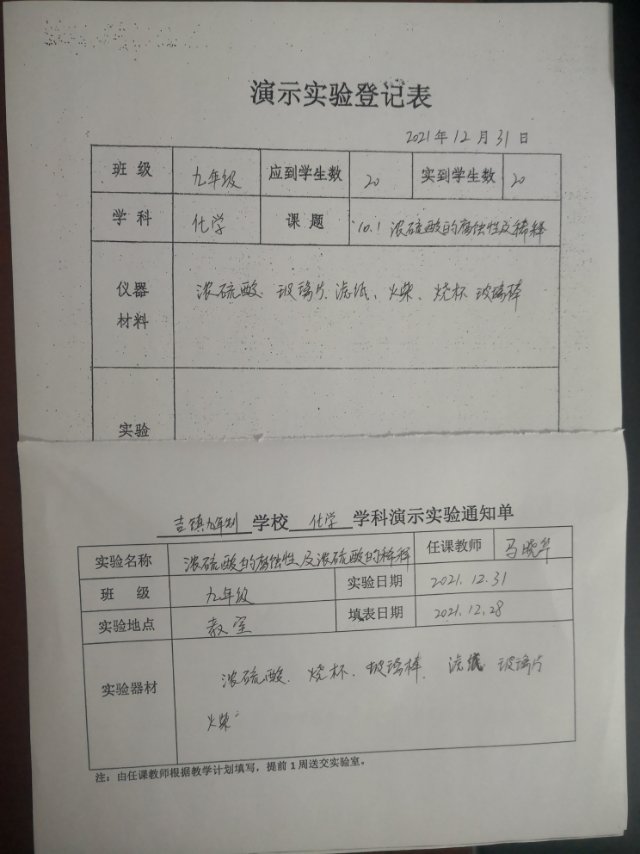 演示实验登记表
2021年12月31日
班 级 九年级 应到学生数 20 实到学生数 20
学 科 化学 课 题 10.1 浓硫酸的腐蚀性及稀释
仪器
材料
浓硫酸、玻璃片、滤纸、火柴、烧杯 玻璃棒
实验
吉镇九年制 学校 化学 学科演示实验通知单
实验名称 浓硫酸的腐蚀性及浓硫酸的稀释 任课教师 马晓华
班 级 九年级 实验日期 2021.12.31
实验地点 教室 填表日期 2021.12.28
实验器材 浓硫酸、烧杯、玻璃棒、滤纸 玻璃片
火柴
注：由任课教师根据教学计划填写，提前1周送交实验室。